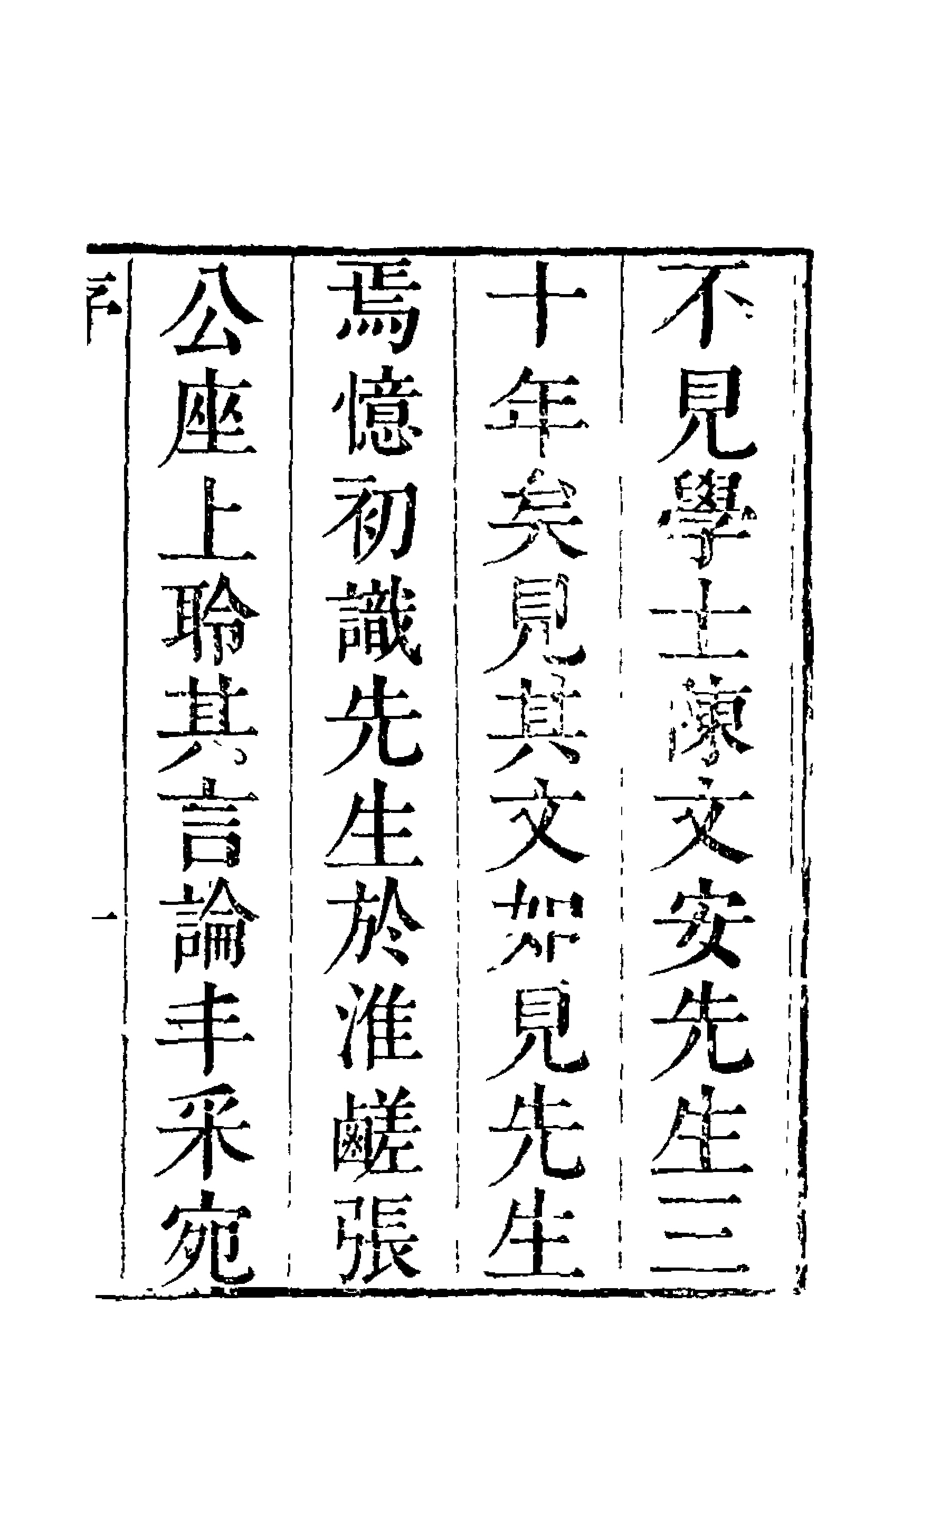 不見學士陳文安先生三
十年矣見其文如見先生
焉憶初識先生於淮鹺張
公座上聆其言論丰采宛
序
一